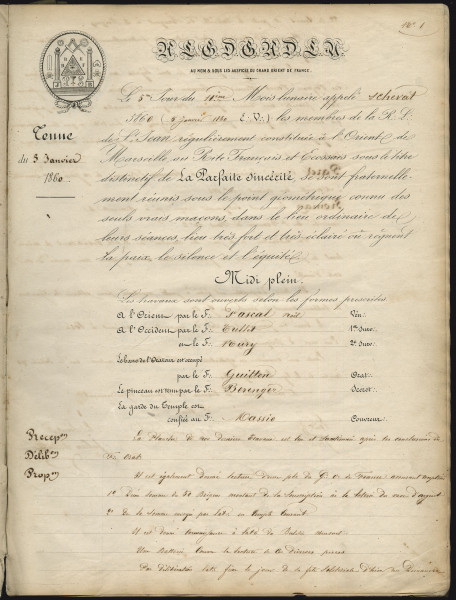 N° 1
A L G D G A D L U
AU NOM & SOUS LES AUSPICES DU GRAND ORIENT DE FRANCE.
Tenue
du 3 Janvier
1860
Le 5me Jour du 11me Mois lunaire appelé Schevat
5860 (3 Janvier 1860 E∴ V∴) les membres de la R. L.
de St Jean régulièrement constituée à l'Orient de
Marseille au Rite Français et Ecossais sous le titre
distinctif de La Parfaite Sincérité se sont fraternelle-
ment réunis sous le point géométrique connu des
seuls vrais maçons, dans le lieu ordinaire de
leurs séances, lieu très fort et très éclairé où règnent
la paix, le silence et l'équité.
Midi plein.
Les travaux sont ouverts selon les formes prescrites
A l'Orient par le F∴ Pascal Vén∴
A l'Occident par le F∴ 1er Surv∴
et le F∴ Roury 2e Surv∴
Le banc de l'Orateur est occupé
par le F∴ Guitton Orat∴
Le pinceau est tenu par le F∴ Berenger Secrét∴
La garde du Temple est
confiée au F∴ Massie Couvreur
Précepon
Délibon
Propon
La Planche de nos derniers Travaux est lue et sanctionnée après les conclusions du
F∴ Orat∴
Il est également donné lecture d'une pl∴ du G∴ O∴ de France
1° D'une somme de 50
2° de la somme
Il est
Une Batterie couvre la lecture de ces diverses pièces